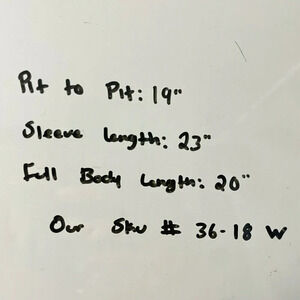 Pit to Pit: 19"
Sleeve Length: 23"
Full Body Length: 20"
Our Sku # 36-18 W